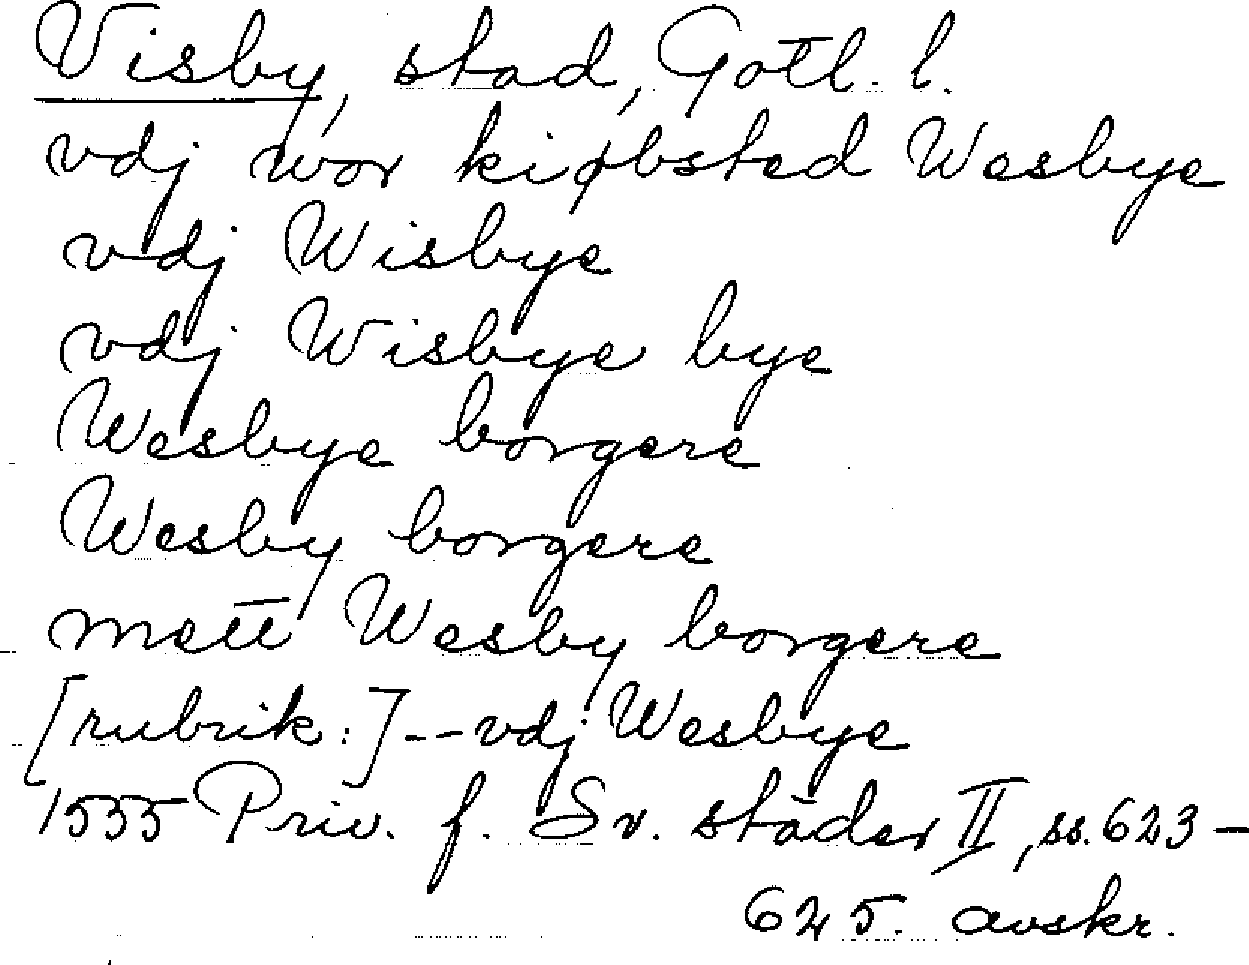 Visby, stad, Gotl. l.
vdj wor kiøbsted Wesbye
vdj Wisbye
vdj Wisbye bye
Wesbye borgere
Wesby borgere
mett Wesby borgere
[rubrik:]--vdj Wesbye
1535 Priv. f. Sv. städer II, ss. 623-
625. avskr.